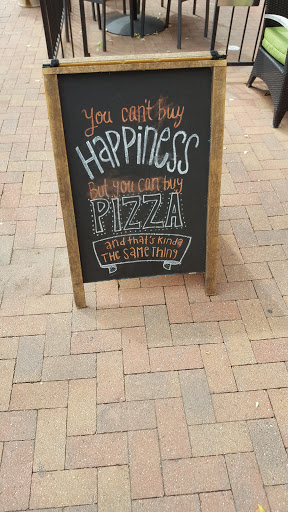 you can't buy
HAPPINESS
But you can buy
PIZZA
and that's kinda
THE SAME THING